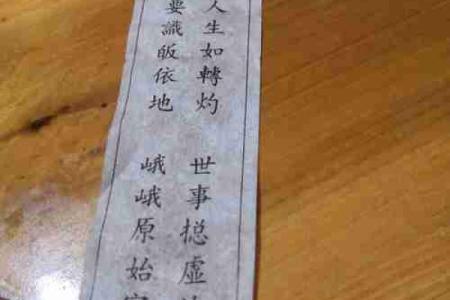 人生如轉灼 世事捴虛
要識皈依地 峨峨原始